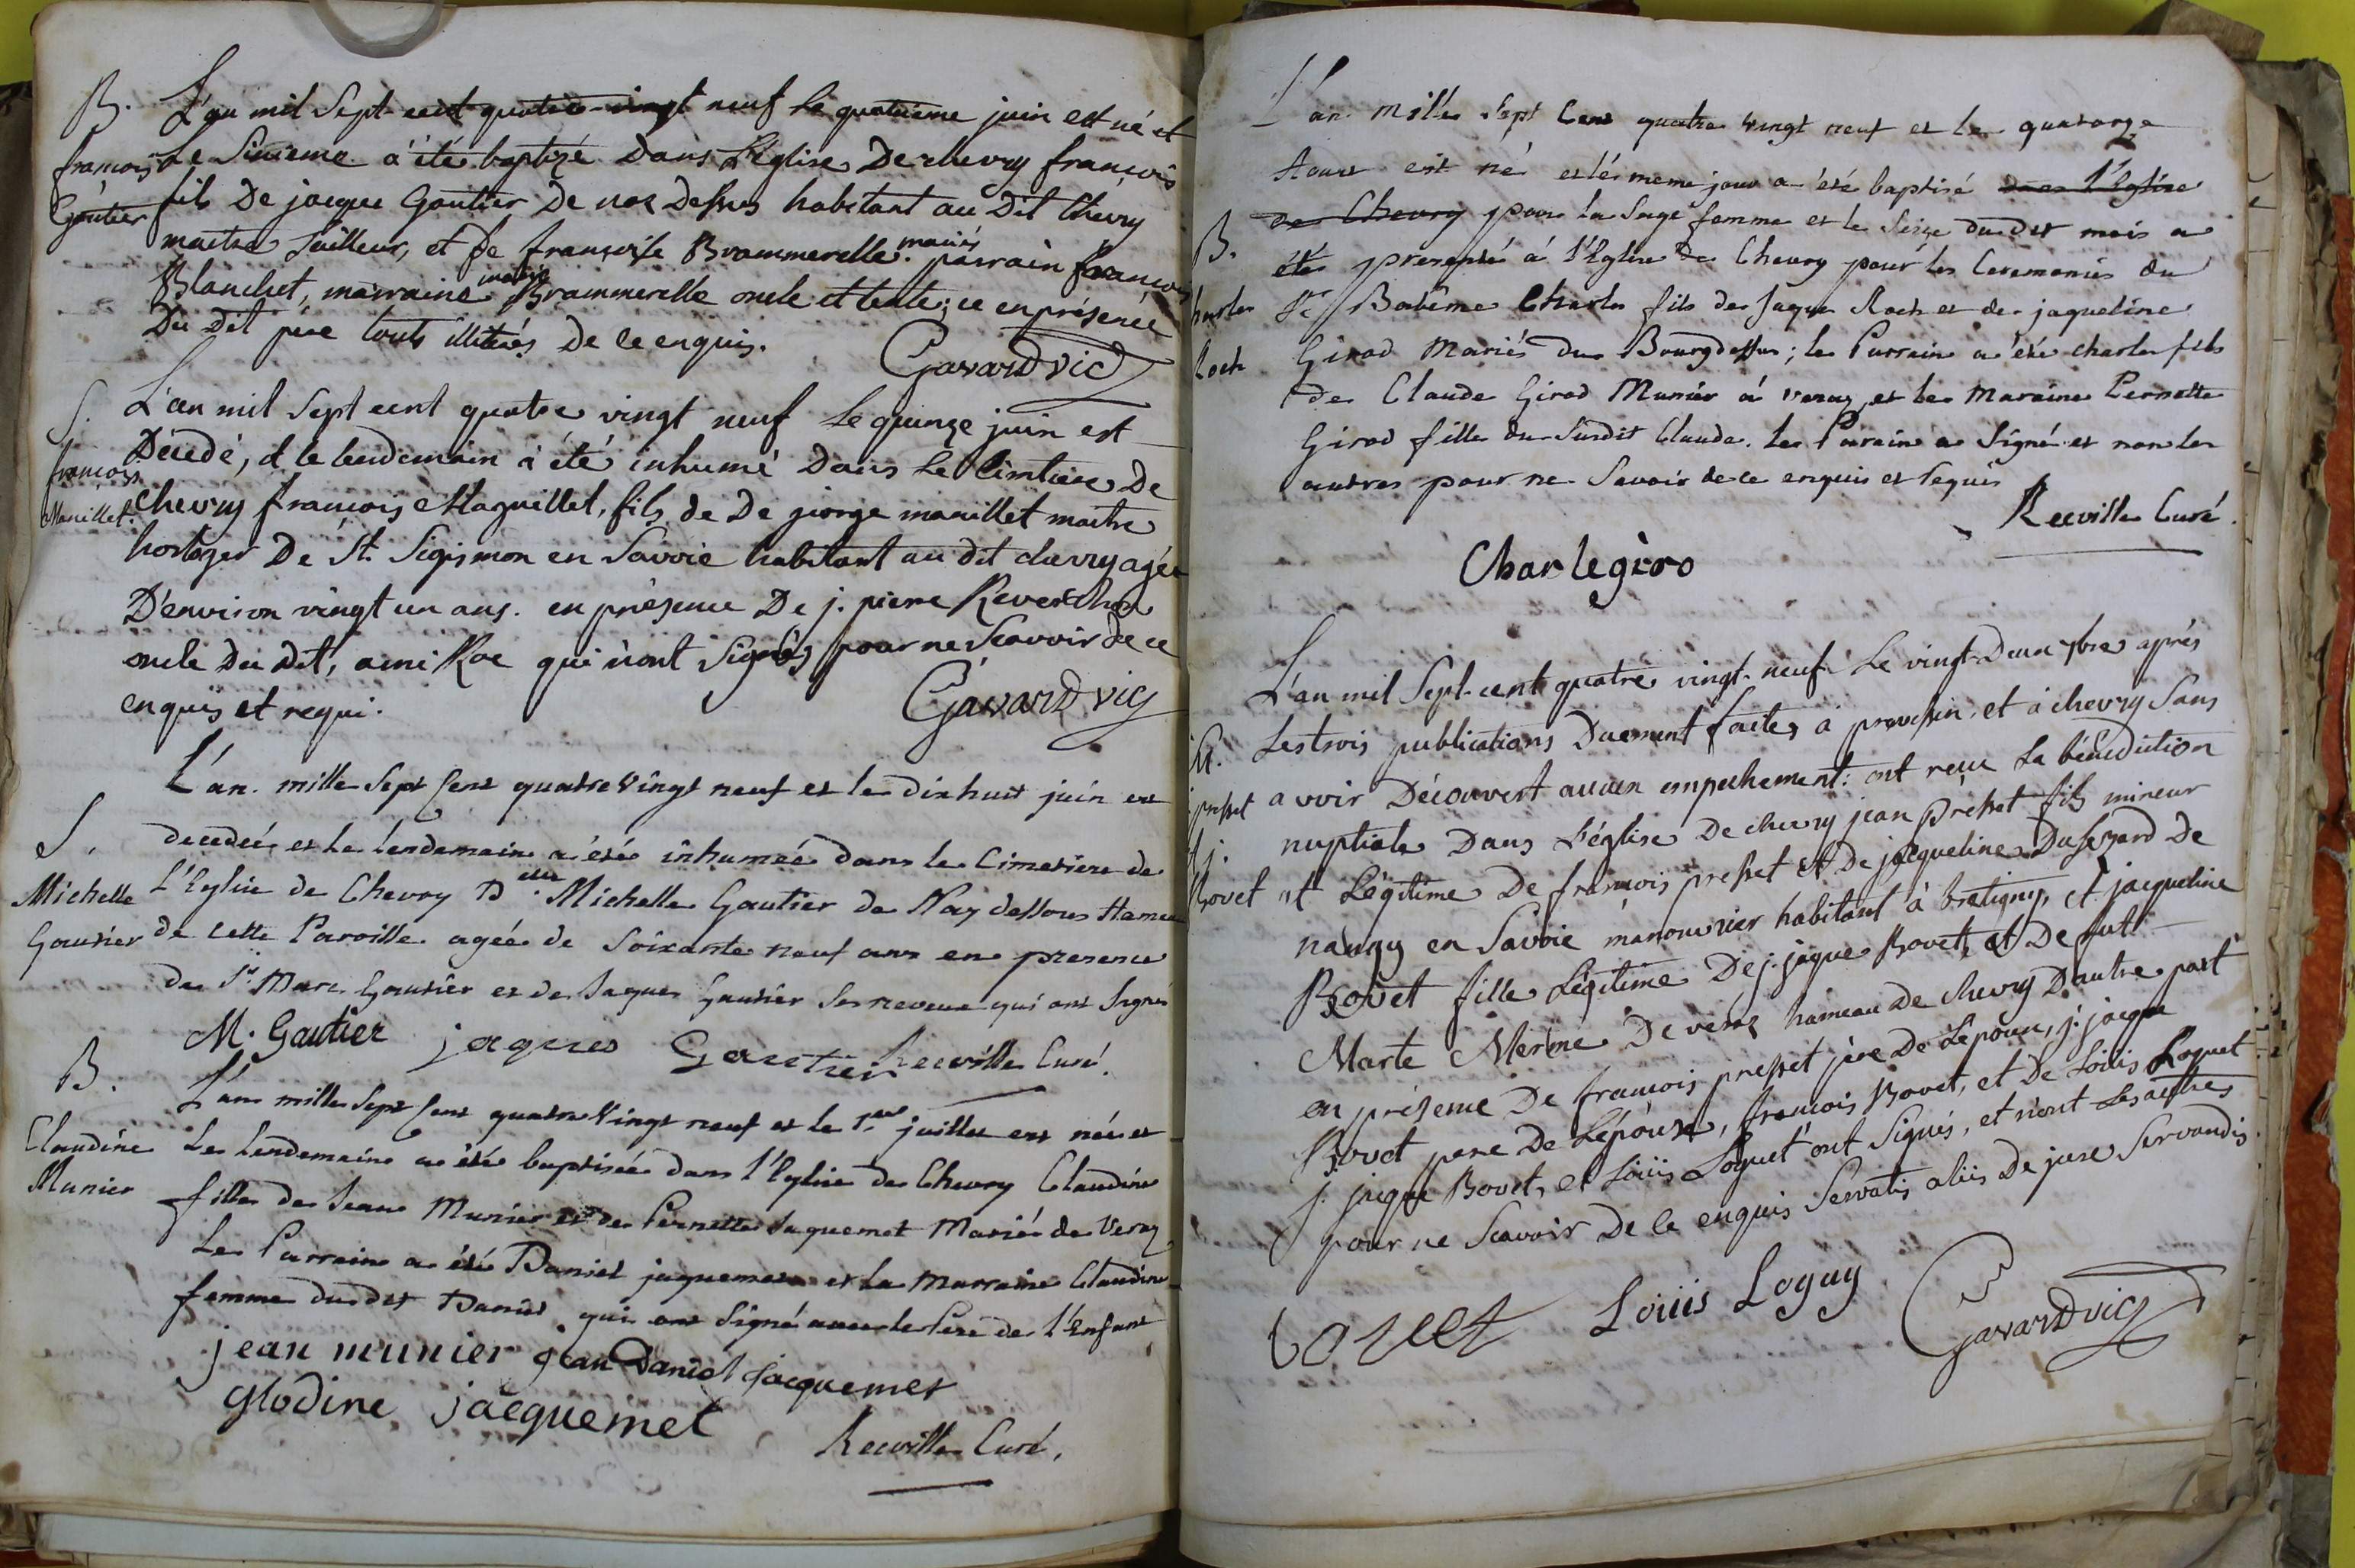 B. L'an mil Sept cent quatre-vingt neuf le quatrieme juin est né et
françois Le Sixieme a été baptizé Dans L'église De chevry françois
Gautier fils De jacque Gautier De nax Dessus habitant au Dit Chevry
maitre tailleur, et De françoise Brammerelle mariés. parrain françois
Blanchet, marraine marie Brammerelle oncle et tente; ce en présence
Du Dit père touts illiterés De ce enquis.
Gavard vic
S. L'an mil Sept cent quatre vingt neuf Le quinze juin est
Décédé, et le lendemain a été inhumé Dans Le Cimtiere De
françois Manillet. chevry françois Maguillet, fils de De jeorge manillet maitre
horloger De St. Sigismon en Savoie habitant au dit chevry agée
D'environ vingt un ans. en présence De j. pierre Reverchon
oncle Du Dit, ami Roc qui n'ont Signés pour ne Scavoir De ce
enquis et requi.
Gavard vic
L'an mille Sept Cent quatre Vingt neuf et le dixhuit juin est
S. decedée et le lendemain a été inhumée dans le Cimetiere de
Michelle L'Eglise de Chevry D.elle Michelle Gautier de Nay dessous Hameau
Gautier de cette Paroisse agée de Soixante neuf ans en presence
de Sr. Marc Gautier et de Jaques Gautier Ses neveux qui ont Signés
M. Gautier jaques Gautier Recville Curé.
B. L'an mille Sept Cent quatre Vingt neuf et le 1.er juillet est née et
Claudine Le Lendemain a été baptisée dans l'Eglise de Chevry Claudine
Munier fille de Jean Munier et de Pernette Jaquemet Mariés de Veraz
Le Parrain a été Daniel jaquemet et la Marraine Claudine
femme dudit Daniel qui ont Signé avec le Pere de l'Enfant
jean munier jean Daniel jacquemet
glodine jacquemet
Recville Curé.
L'an Mille Sept Cent quatre Vingt neuf et le quatorze
Aoust est né et le meme jour a été baptisé dans l'Eglise
B. de Chevry par la Sage femme et le Seize dudit mois a
été presenté à l'Eglise de Chevry pour les Ceremonies du
harles St. Batême Charles fils de Jaque Roch et de jaqueline
Roch Girod Mariés du Bourgdessus; le Parrain a été charles fils
de Claude Girod Munier à veraz, et la Maraine Pernette
Girod fille du Susdit Claude. Le Parain a Signé et non les
autres pour ne Savoir de ce enquis et requis
Recville Curé.
Charlegiro
L'an mil Sept-cent quatre vingt-neuf Le vingt-Deux 7bre après
M. Les trois publications Duement faites à prevessin, et à chevry Sans
presset avoir Découvert aucun empechement: ont reçu La bénédiction
nuptiale Dans L'église De chevry jean presset fils mineur
Bovet et Légitime De françois presset et De jacqueline Duserard De
nangy en Savoie manouvrier habitant à bretigny, et jacqueline
Bovet fille Légitime De j. jaque Bovet, et De fut
Marte Merme De veraz hameau De chevry D'autre part
en présence De francois presset père De Lepoux, j. jacque
Bovet pere De Lépouse, francois Bovet, et De Loüis Loquet
j. jacque Bovet, et Loüis Loguet ont Signés, et n'ont Les autres
pour ne Scavoir De ce enquis Servatis aliis De jure Servandis.
bovet Loüis Loguy Gavard vic